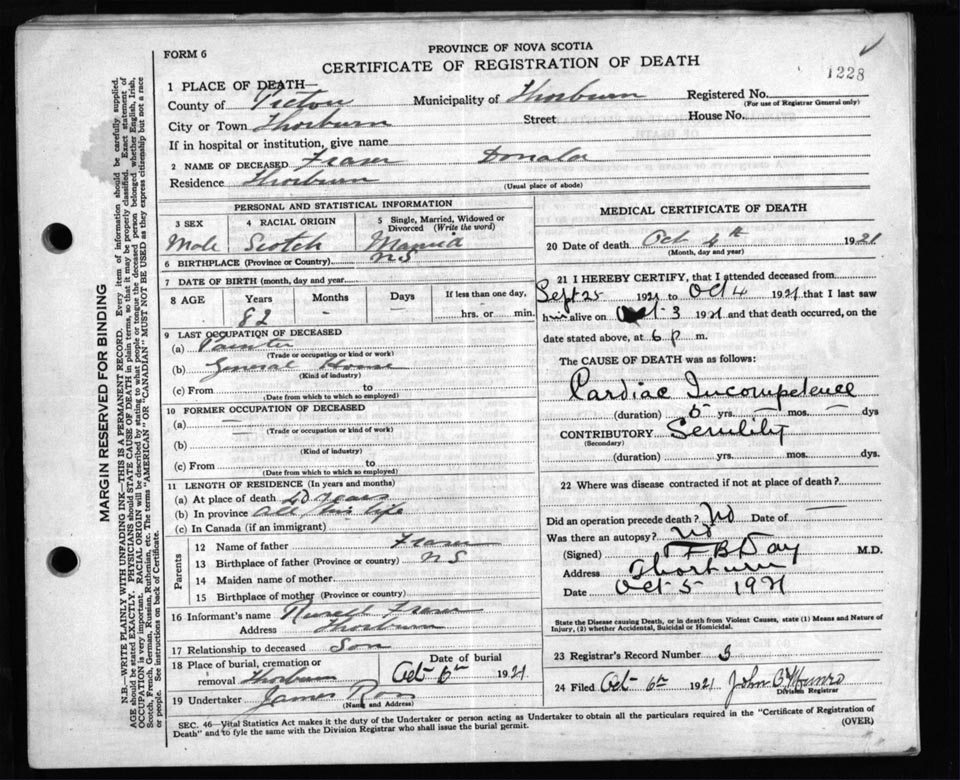 FORM 6
PROVINCE OF NOVA SCOTIA
CERTIFICATE OF REGISTRATION OF DEATH
1228
1 PLACE OF DEATH—
County of Pictou Municipality of Thorburn Registered No.
(For use of Registrar General only)
City or Town Thorburn Street House No.
If in hospital or institution, give name
2 NAME OF DECEASED Fraser Donald
Residence Thorburn
(Usual place of abode)
PERSONAL AND STATISTICAL INFORMATION
3 SEX 4 RACIAL ORIGIN 5 Single, Married, Widowed or Divorced (Write the word)
Male Scotch Married
6 BIRTHPLACE (Province or Country) N S
7 DATE OF BIRTH (month, day and year)
8 AGE Years Months Days If less than one day,
82 - - hrs. or min.
9 LAST OCCUPATION OF DECEASED
(a) Painter
(Trade or occupation or kind or work)
(b) General House
(Kind of industry)
(c) From to
(Date from which to which so employed)
10 FORMER OCCUPATION OF DECEASED
(a) —
(Trade or occupation or kind of work)
(b)
(Kind of industry)
(c) From to
(Date from which to which so employed)
11 LENGTH OF RESIDENCE (In years and months)
(a) At place of death 40 years
(b) In province all his life
(c) In Canada (if an immigrant)
Parents
12 Name of father Fraser
13 Birthplace of father (Province or country) N S
14 Maiden name of mother
15 Birthplace of mother (Province or country)
16 Informant's name Fraser
Address Thorburn
17 Relationship to deceased Son
18 Place of burial, cremation or removal Thorburn Date of burial Oct 6th 1921
19 Undertaker James Ross
(Name and Address)
MEDICAL CERTIFICATE OF DEATH
20 Date of death Oct 4th 1921
(Month, day and year)
21 I HEREBY CERTIFY, that I attended deceased from
Sept 25 1921 to Oct 4 1921 that I last saw
him alive on Oct 3 1921 and that death occurred, on
date stated above, at 6 p m.
The CAUSE OF DEATH was as follows:
Cardiac Incompetence
(duration) yrs. — mos. — dys
CONTRIBUTORY Senility
(Secondary)
(duration) yrs. mos. dys.
22 Where was disease contracted if not at place of death?
Did an operation precede death? No Date of —
Was there an autopsy? No
(Signed) Day M.D.
Address Thorburn
Date Oct 5 1921
State the Disease causing Death, or in death from Violent Causes, state (1) Means and Nature of
Injury, (2) whether Accidental, Suicidal or Homicidal.
23 Registrar's Record Number 3
24 Filed Oct 6th 1921 John B Munro
Division Registrar
SEC. 46—Vital Statistics Act makes it the duty of the Undertaker or person acting as Undertaker to obtain all the particulars required in the "Certificate of Registration of
Death" and to fyle the same with the Division Registrar who shall issue the burial permit. (OVER)
MARGIN RESERVED FOR BINDING
N.B.—WRITE PLAINLY WITH UNFADING INK—THIS IS A PERMANENT RECORD. Every item of information should be carefully supplied.
AGE should be stated EXACTLY. PHYSICIANS should STATE CAUSE OF DEATH in plain terms, so that it may be properly classified. Exact statement of
OCCUPATION is very important. RACIAL ORIGIN will be described by stating to what people or tongue the deceased person belonged whether English, Irish,
Scotch, French, German, Russian, Ruthenian, etc. The terms "AMERICAN" OR "CANADIAN" MUST NOT BE USED as they express citizenship but not a race
or people. See instructions on back of Certificate.